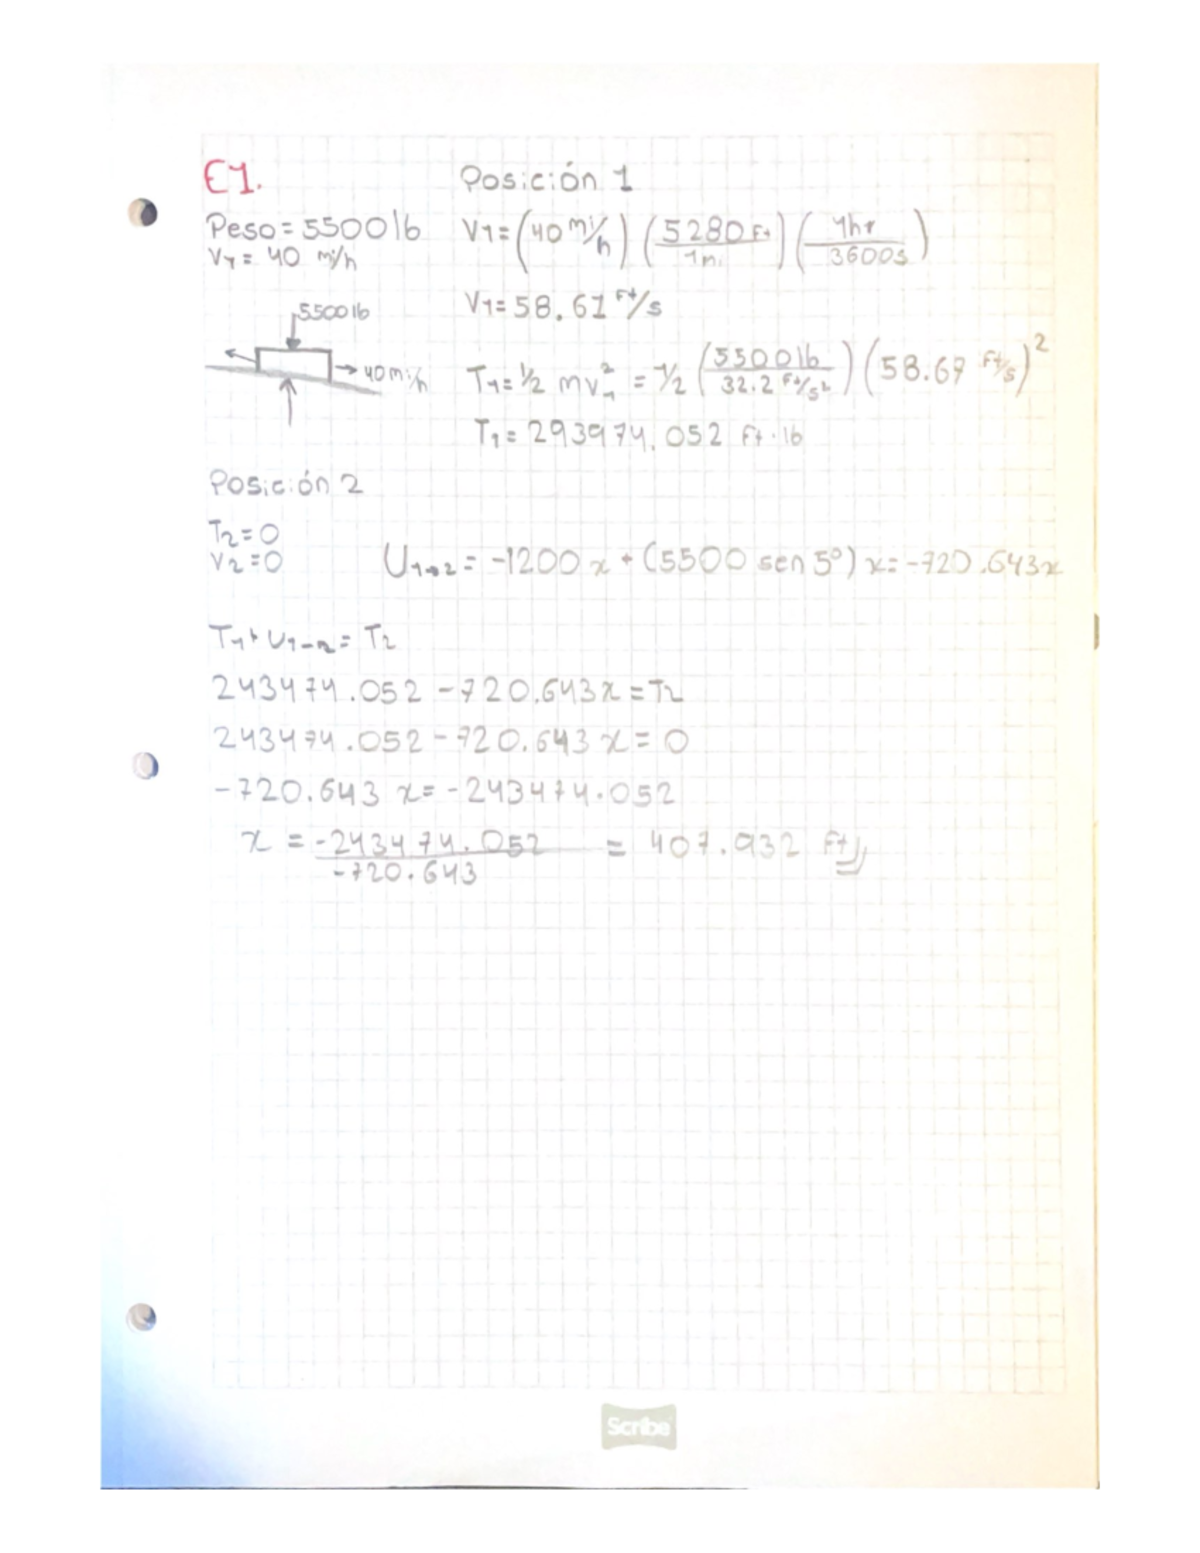 E1.
Posición 1
Peso = 5500 lb
V1 = (40 mi/h) (5280 Ft / 1mi) (1hr / 3600s)
V1 = 40 mi/h
V1 = 58.67 Ft/s
5500 lb
40 mi/h
T1 = 1/2 mv1² = 1/2 (5500 lb / 32.2 Ft/s²) (58.67 Ft/s)²
T1 = 293974.052 Ft·lb
Posición 2
T2 = 0
V2 = 0
U1→2 = -1200x + (5500 sen 5°) x = -720.643x
T1 + U1-2 = T2
293974.052 - 720.643x = T2
293974.052 - 720.643x = 0
-720.643 x = -293974.052
x = -293974.052 / -720.643 = 407.932 Ft
Scribe